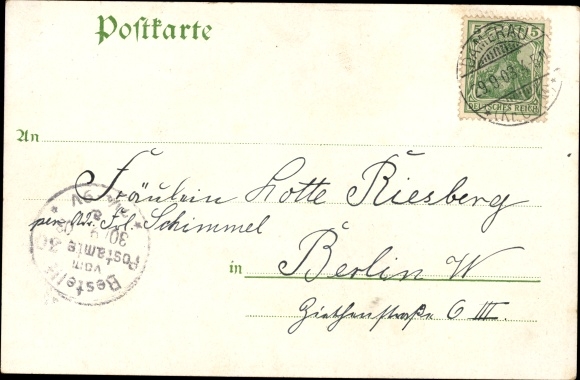 Postkarte
5
DEUTSCHES REICH
An
Fräulein Lotte Riesberg
per Adr. Frl. Schimmel
in Berlin W
Ziethenstraße 6 III.
Bestellt
vom
Postamte 30